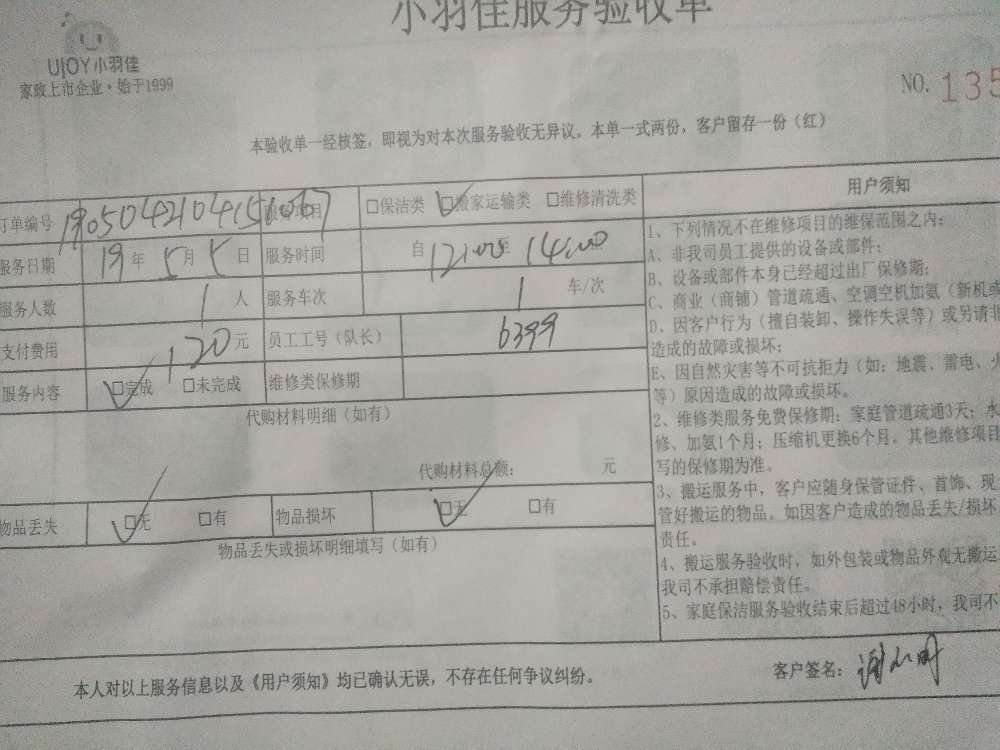 小羽佳服务验收单
UJOY小羽佳
家政上市企业·始于1999
NO. 135
本验收单一经核签，即视为对本次服务验收无异议。本单一式两份，客户留存一份（红）
订单编号 服务项目 □保洁类 ☑搬家运输类 □维修清洗类
服务日期 19年5月5日 服务时间 自12:00至14:00
服务人数 1人 服务车次 1 车/次
支付费用 120元 员工工号（队长） 6399
服务内容 ☑完成 □未完成 维修类保修期
代购材料明细（如有）
代购材料总额： 元
物品丢失 ☑无 □有 物品损坏 ☑无 □有
物品丢失或损坏明细填写（如有）
用户须知
1、下列情况不在维修项目的维保范围之内：
A、非我司员工提供的设备或部件；
B、设备或部件本身已经超过出厂保修期；
C、商业（商铺）管道疏通、空调空机加氨（新机或
D、因客户行为（擅自装卸、操作失误等）或另请非
造成的故障或损坏；
E、因自然灾害等不可抗拒力（如：地震、雷电、火
等）原因造成的故障或损坏。
2、维修类服务免费保修期：家庭管道疏通3天；水
修、加氨1个月；压缩机更换6个月。其他维修项目
写的保修期为准。
3、搬运服务中，客户应随身保管证件、首饰、现
管好搬运的物品。如因客户造成的物品丢失/损坏
责任。
4、搬运服务验收时，如外包装或物品外观无搬运
我司不承担赔偿责任。
5、家庭保洁服务验收结束后超过48小时，我司不
本人对以上服务信息以及《用户须知》均已确认无误，不存在任何争议纠纷。
客户签名：